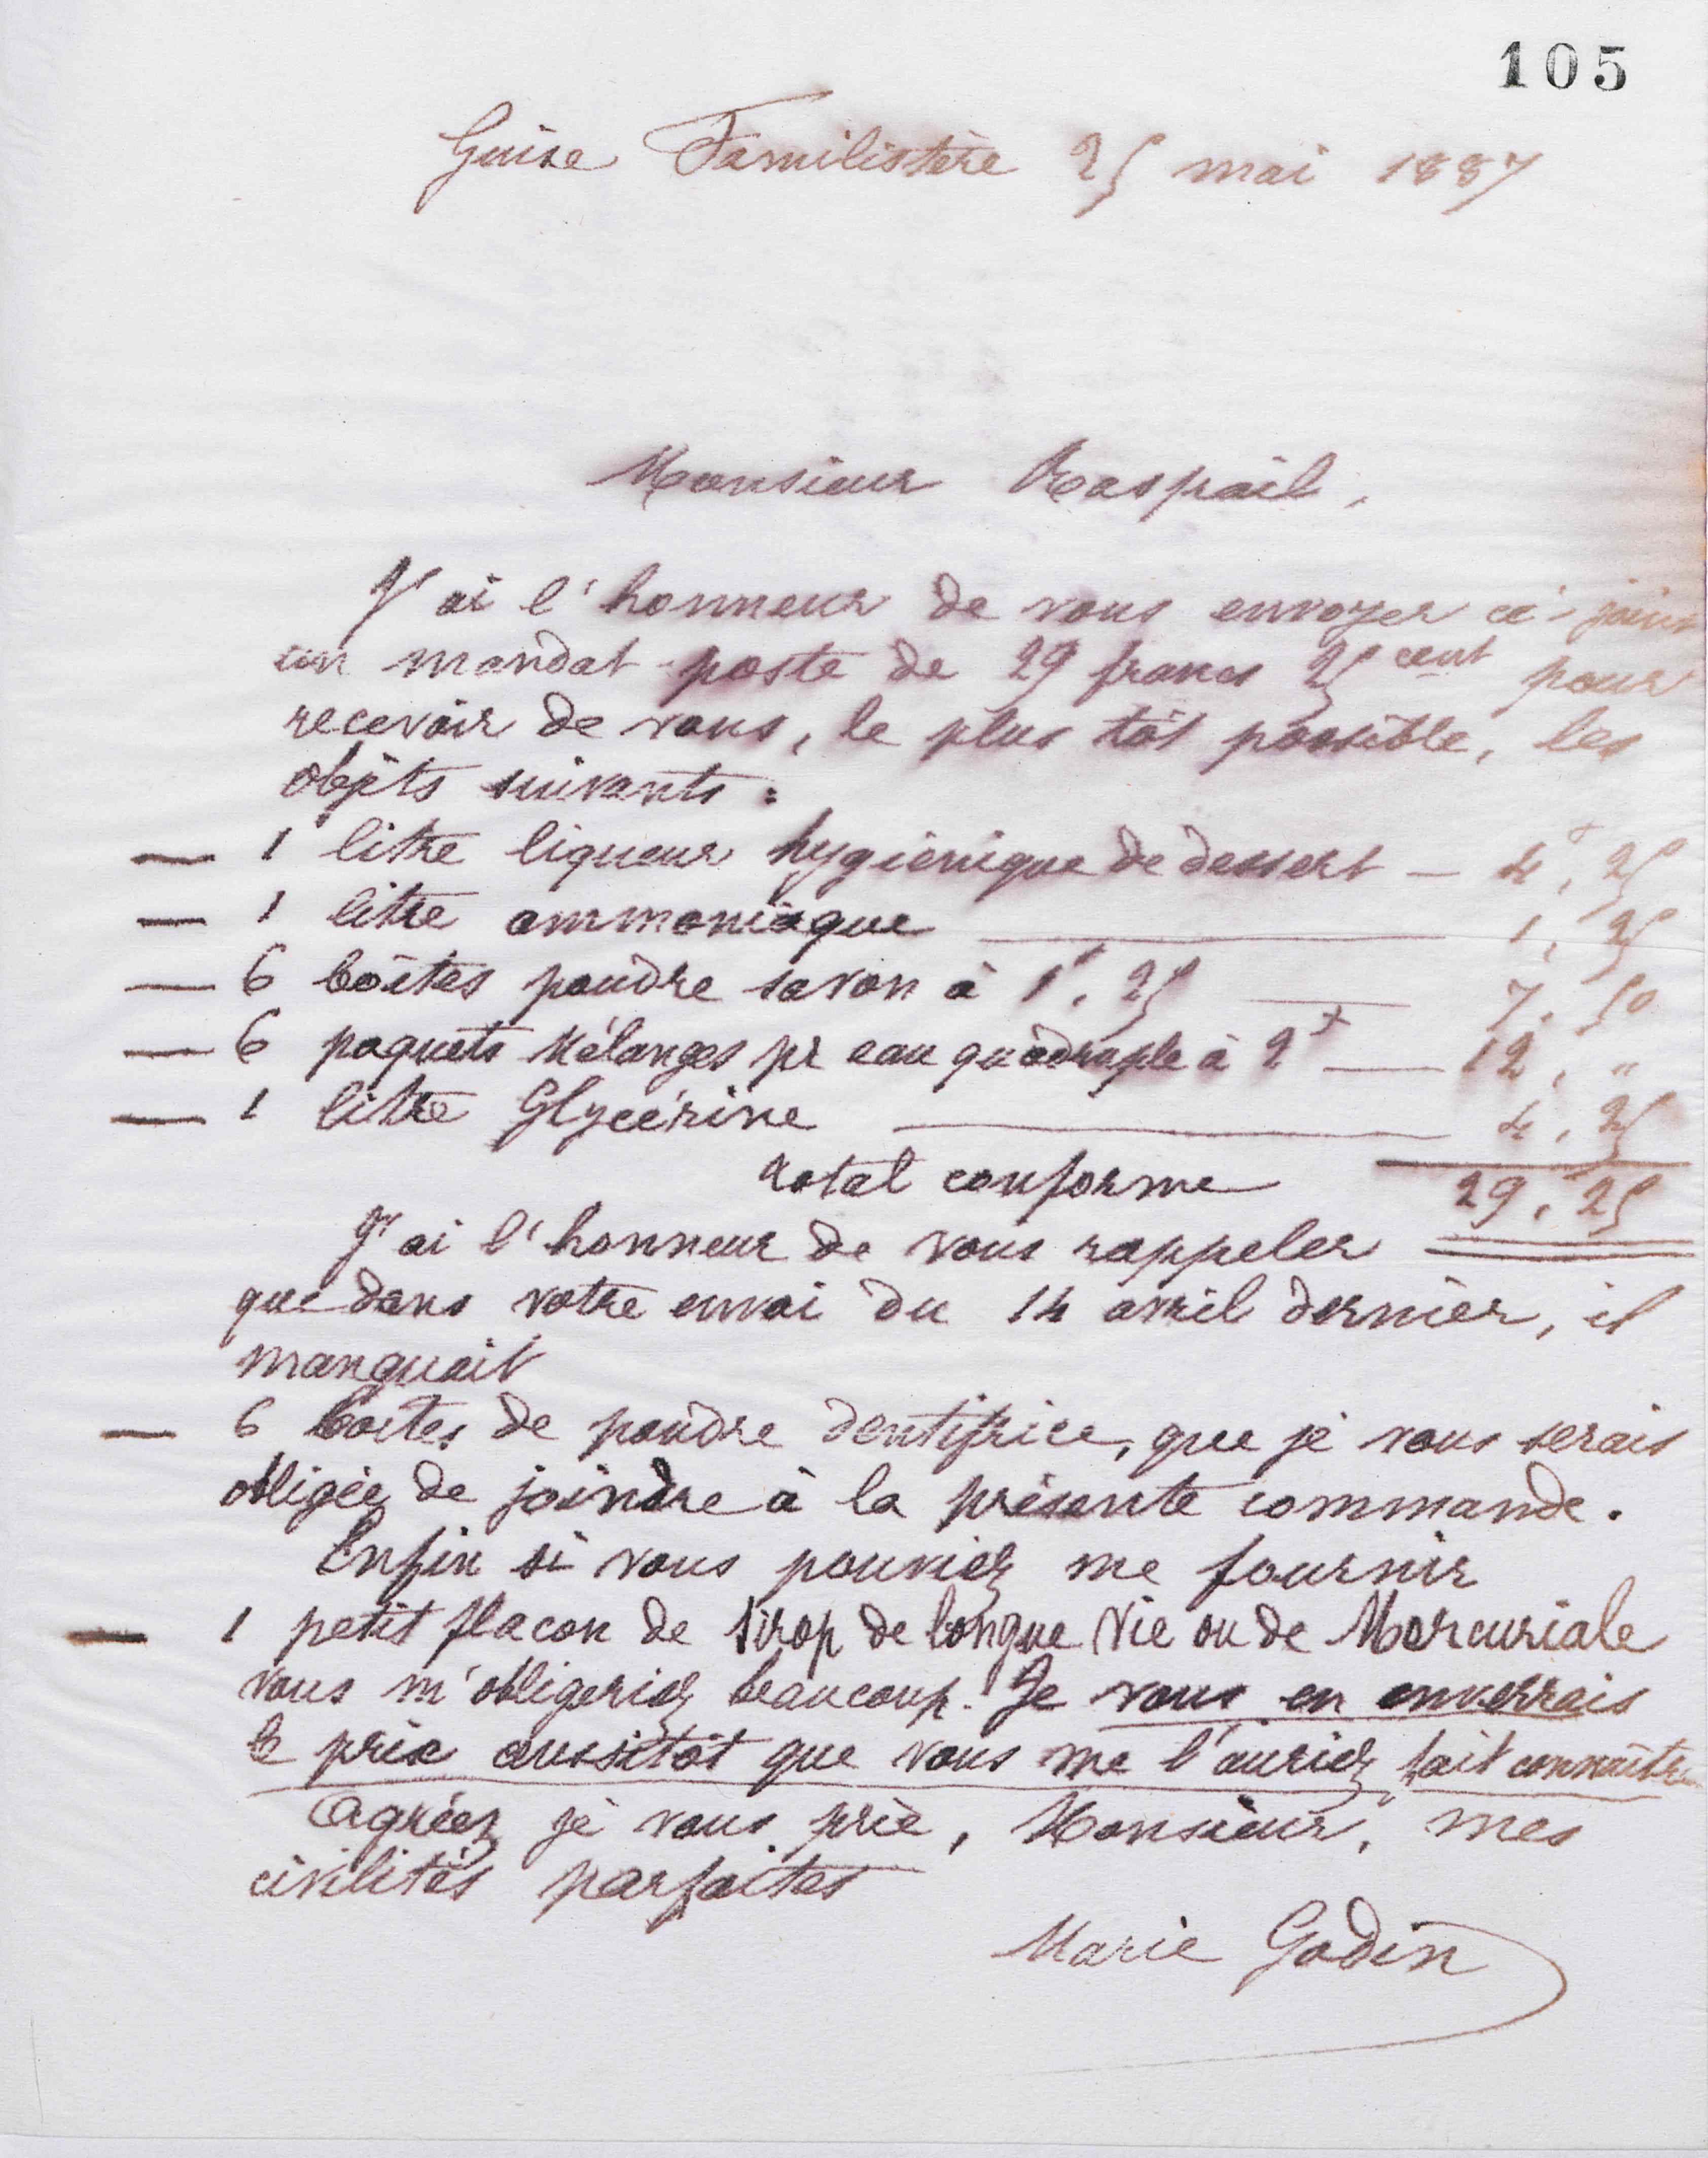 105
Guise Familistère 25 mai 1887
Monsieur Raspail,
J'ai l'honneur de vous envoyer ci-joint
un mandat-poste de 29 francs 25 cent pour
recevoir de vous, le plus tôt possible, les
objets suivants :
— 1 litre liqueur hygiénique de dessert — 4f, 25
— 1 litre ammoniaque — 1, 25
— 6 boîtes poudre savon à 1f, 25 — 7, 50
— 6 paquets Mélanges pr eau quadruple à 2f — 12, "
— 1 litre Glycérine — 4, 25
total conforme 29, 25
J'ai l'honneur de vous rappeler
que dans votre envoi du 14 avril dernier, il
manquait
— 6 boites de poudre dentifrice, que je vous serais
obligée de joindre à la présente commande.
Enfin si vous pouviez me fournir
— 1 petit flacon de sirop de longue vie ou de Mercuriale
vous m'obligeriez beaucoup. Je vous en enverrais
le prix aussitôt que vous me l'auriez fait connaître
Agréez je vous prie, Monsieur, mes
civilités parfaites
Marie Godin